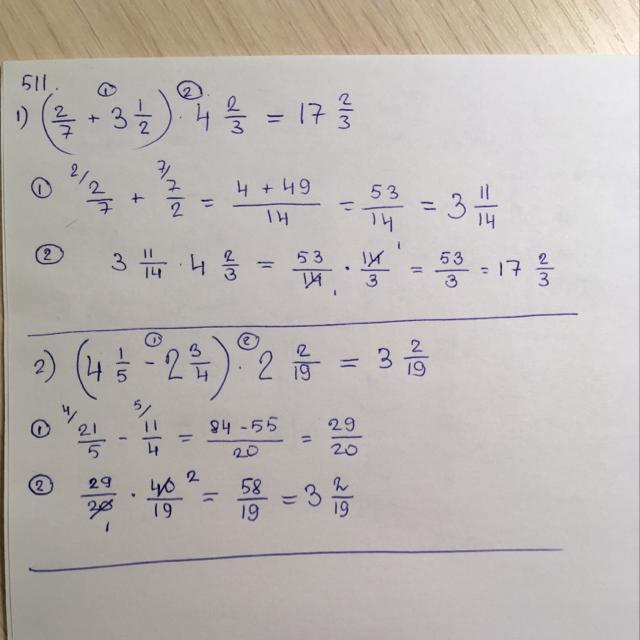 511.
① ②
1) (2/7 + 3 1/2) · 4 2/3 = 17 2/3
① 2/ 2/7 + 7/ 7/2 = 4 + 49/14 = 53/14 = 3 11/14
② 3 11/14 · 4 2/3 = 53/14 1 · 14/3 1 = 53/3 = 17 2/3
① ②
2) (4 1/5 - 2 3/4) · 2 2/19 = 3 2/19
① 4/ 21/5 - 5/ 11/4 = 84 - 55/20 = 29/20
② 29/20 1 · 40/19 2 = 58/19 = 3 2/19